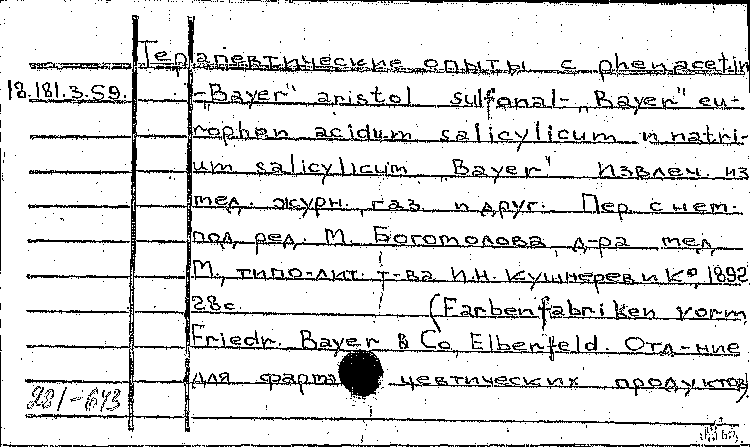 Терапевтические опыты с phenacetin
18.181.3.59. -„Bayer" aristol sulfonal-„Bayer" eu-
rophen acidum salicylicum и natri-
um salicylicum Bayer" Извлеч. из
мед. журн. газ. и друг. Пер с нем.
под ред. М. Боголюбова, д-ра мед
М., типо-лит. т-ва И.Н. Кушнерев и К°, 1892
28с. (Farbenfabriken vorm
Friedr. Bayer & Co, Elberfeld. Отд-ние
для фарма цевтических продуктов)
221-643